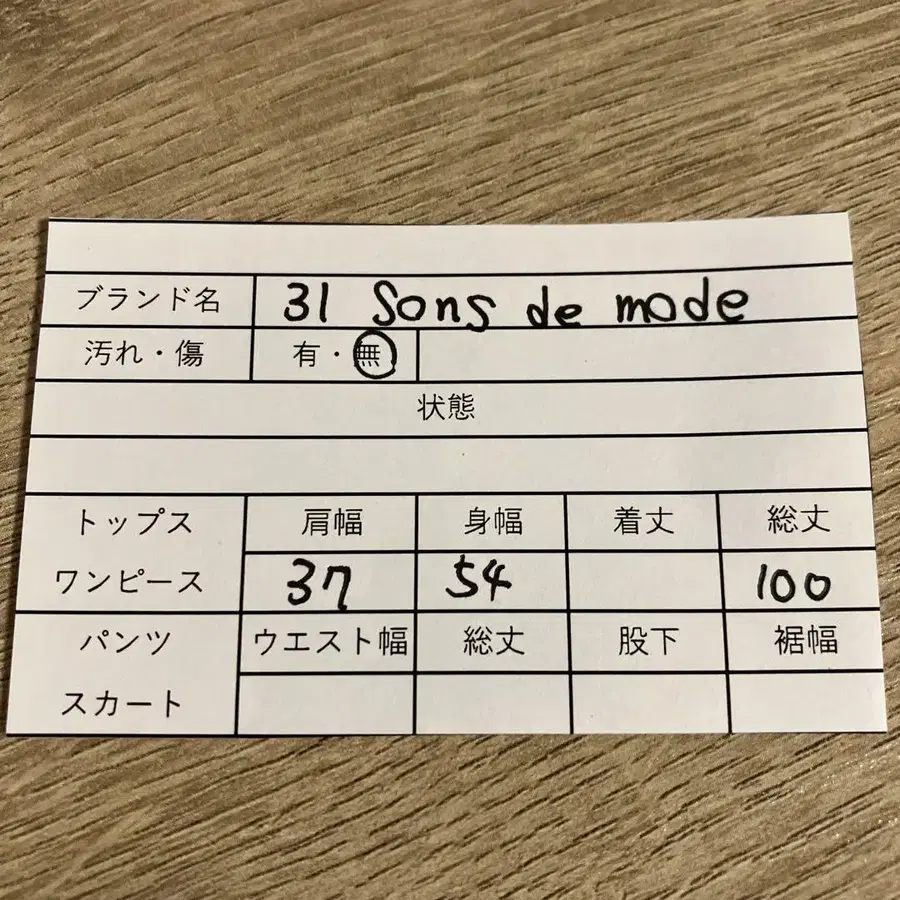 ブランド名 31 Sons de mode
汚れ・傷 有・無
状態
トップス 肩幅 身幅 着丈 総丈
ワンピース 37 54 100
パンツ ウエスト幅 総丈 股下 裾幅
スカート